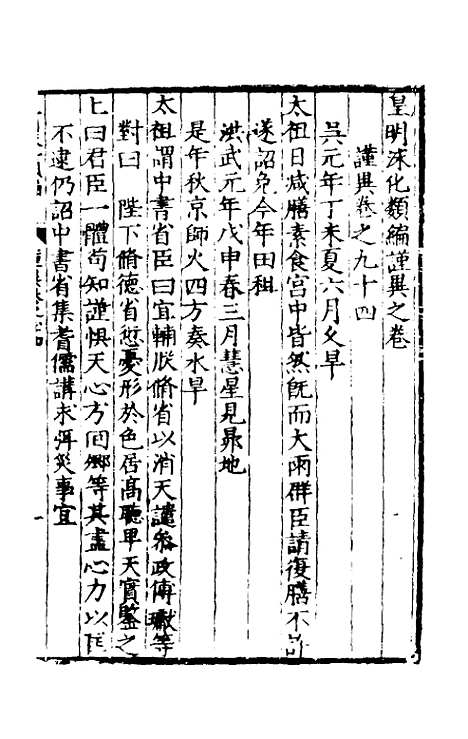 皇明泳化類編謹異之卷
謹異卷之九十四
吳元年丁未夏六月久旱
太祖日减膳素食宫中皆然旣而大雨群臣請復膳不許
遂詔免今年田租
洪武元年戊申春三月彗星見昴地
是年秋京師火四方奏水旱
太祖謂中書省臣曰宜輔朕脩省以消天譴叅政傅瓛等
對曰 陛下脩德省愆憂形於色居高聽卑天實鑒之
上曰君臣一體苟知謹惧天心方囬鄉等其盡心力以匡
不逮仍詔中書省集耆儒講求弭災事宜